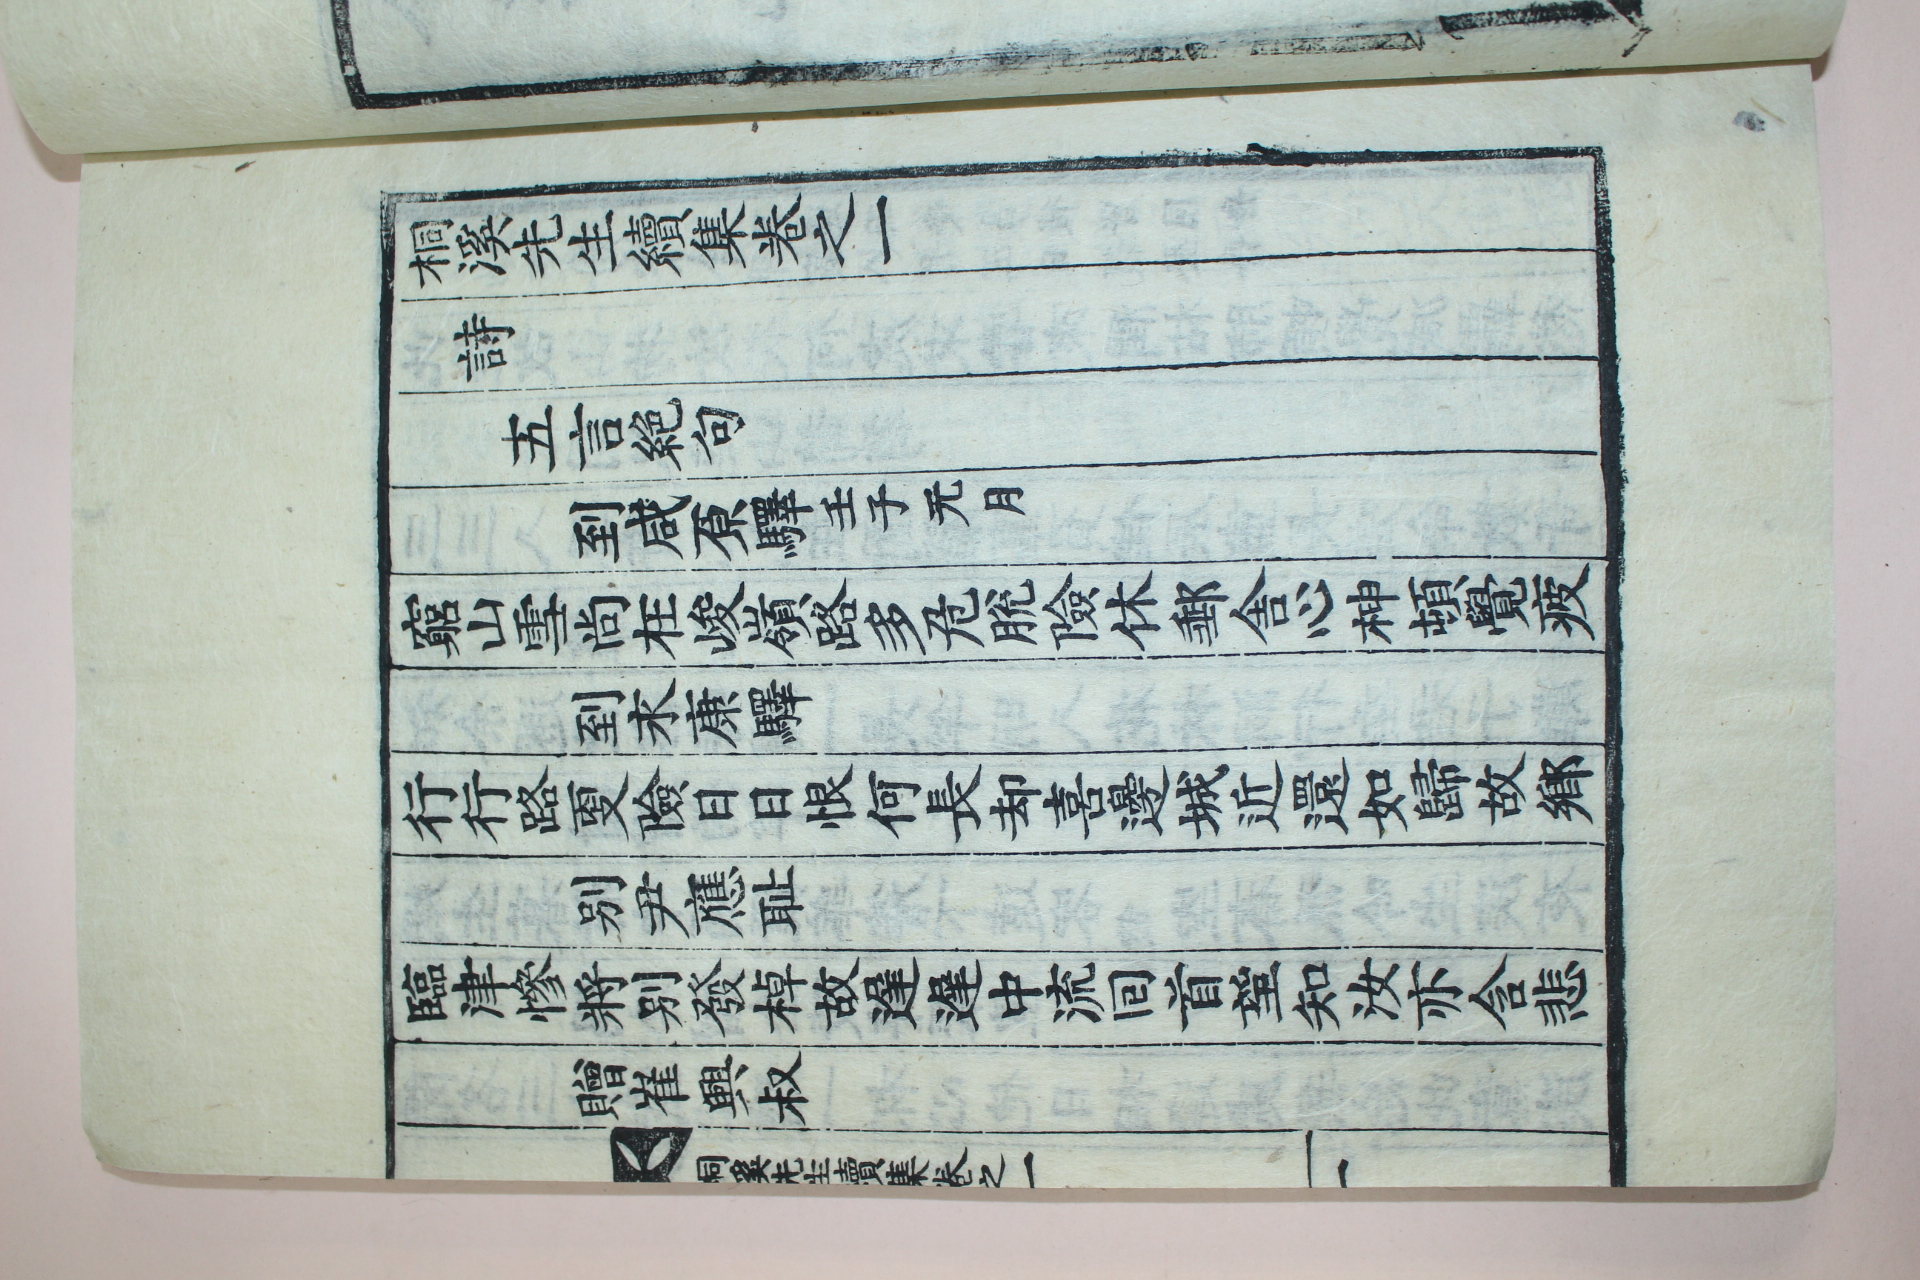 桐溪先生續集卷之一
詩
五言絶句
到咸原驛壬子元月
窮山雪尚在峻嶺路多危脫險休郵舍心神頓覺疲
到永康驛
行行路更險日日恨何長却喜邊城近還如歸故鄉
別尹應耻
臨津慘將別發棹故遲遲中流回首望知汝亦含悲
贈崔興叔
桐溪先生續集卷之一 一